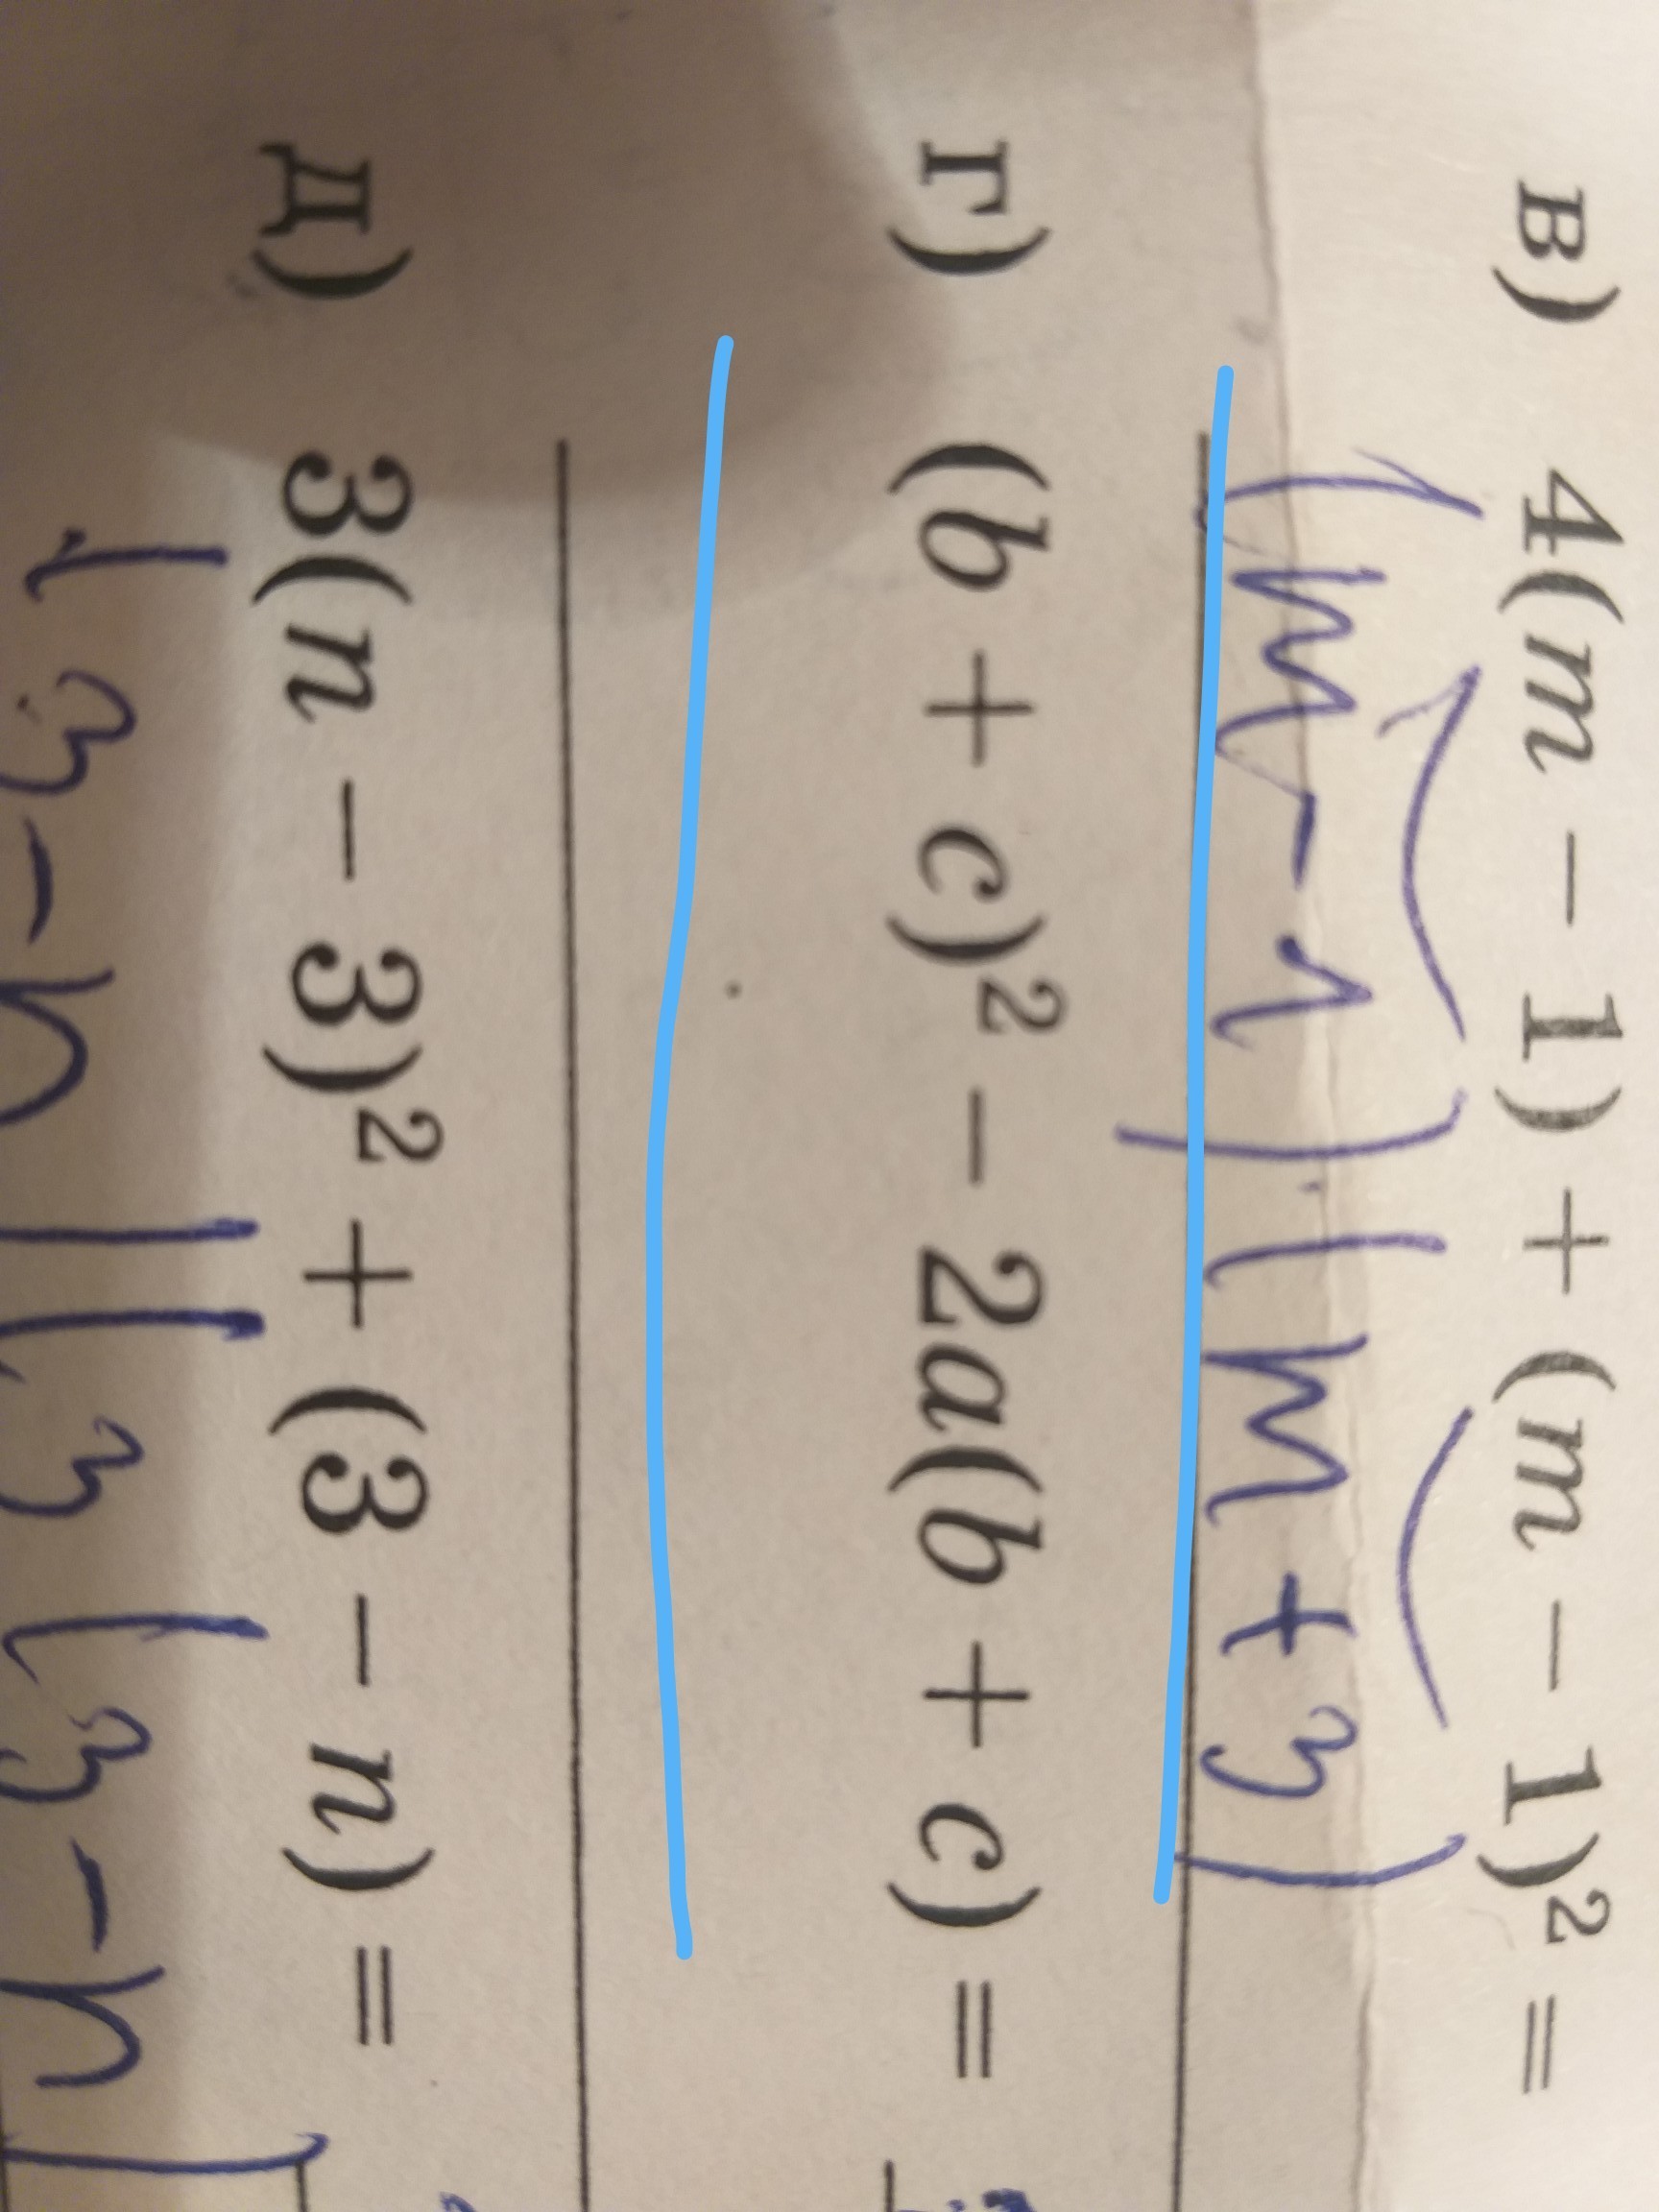 в) 4(m − 1) + (m − 1)² =
(m-1)(m+3)
г) (b + c)² − 2a(b + c) =
д) 3(n − 3)² + (3 − n) =